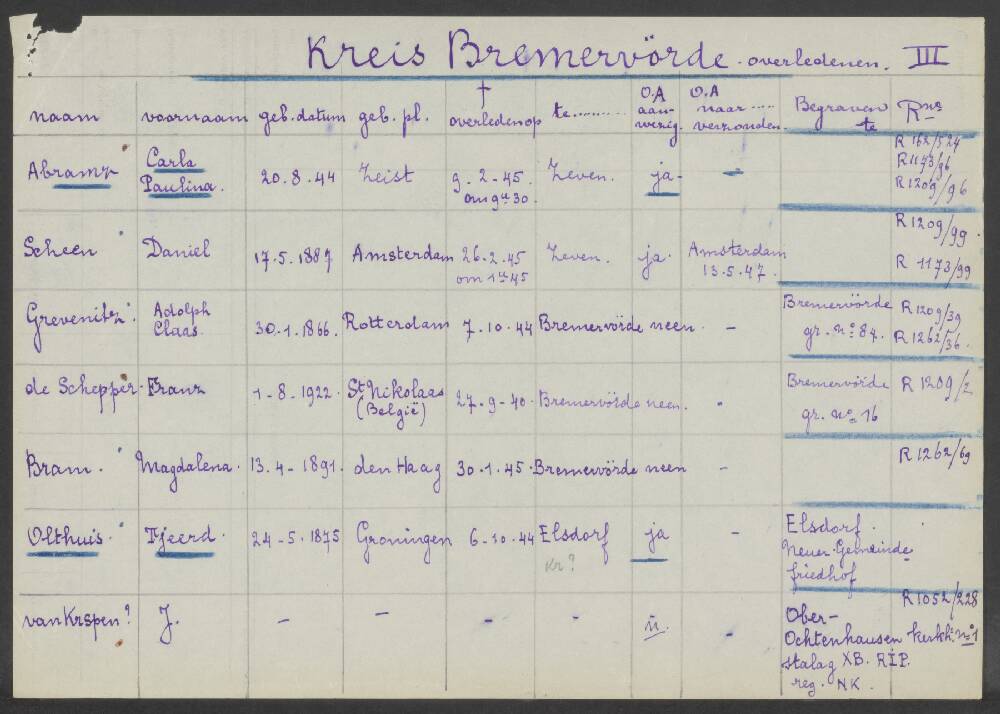 Kreis Bremervörde - overledenen. III
naam voornaam geb. datum geb. pl. † overleden op te.......... O.A aanwezig. O.A naar ..... verzonden. Begraven te R=ns
Abramz Carla Paulina. 20.8.44 Zeist 9-2-45. om 9 u 30. Zeven. ja- - R 162/524 R1173/96 R1209/96
Scheen Daniel 17.5.1887 Amsterdam 26-2.45 om 1 u 45 Zeven. ja. Amsterdam 13.5.47. R1209/99 R 1173/99
Grevenitz. Adolph Claas. 30.1.1866. Rotterdam 7-10.44 Bremervörde neen. - Bremervörde gr. no 84. R1209/39 R1262/36.
de Schepper. Franz 1-8.1922. St. Nikolaas (België) 27-9-40. Bremervörde neen. - Bremervörde gr. no 16 R1209/2
Bram. Magdalena. 13.4-1891. den Haag 30.1.45. Bremervörde neen - R1262/69
Olthuis. Tjeerd. 24-5.1875 Groningen 6-10.44 Elsdorf kr? ja - Elsdorf. Neuer Gemeinde friedhof
van Krspen? J. - - - - - Ober-Ochtenhausen kerkh. no 1 stalag XB. RIP. reg. NK. R1052/228